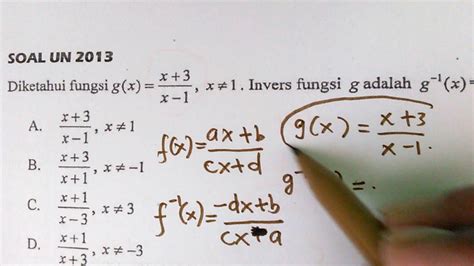 SOAL UN 2013
Diketahui fungsi g(x) = (x+3)/(x−1), x ≠ 1. Invers fungsi g adalah g⁻¹(x)=
A. (x+3)/(x−1), x ≠ 1
B. (x+3)/(x+1), x ≠ −1
C. (x+1)/(x−3), x ≠ 3
D. (x+1)/(x+3), x ≠ −3
f(x) = (ax+b)/(cx+d)
f⁻¹(x) = (−dx+b)/(cx−a)
g(x) = (x+3)/(x−1)